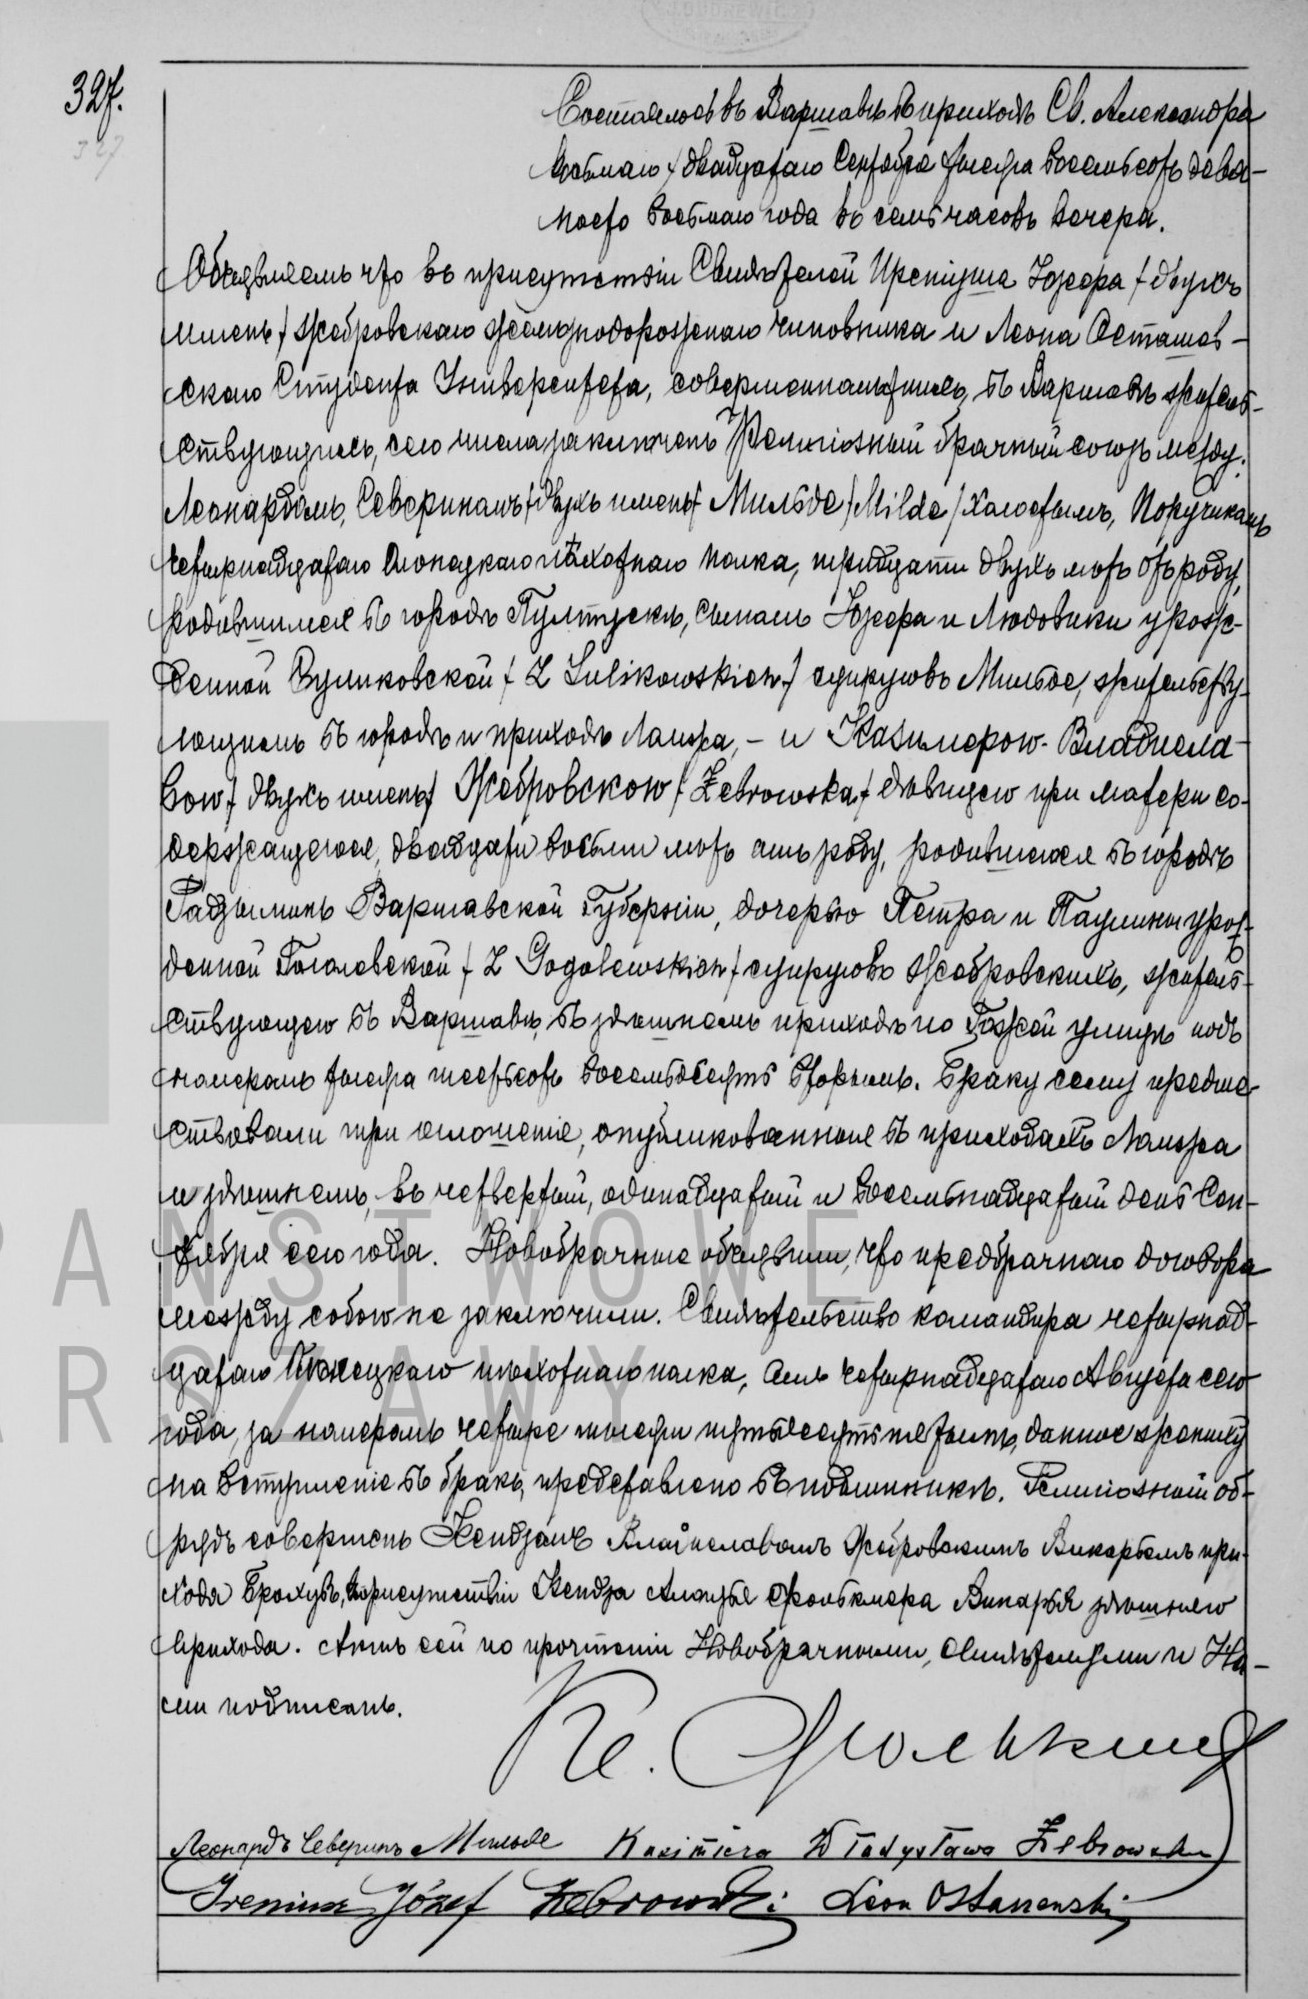 327.
327
Состоялось въ Варшавѣ въ приходѣ Св. Александра
восьмаго / двадцатаго Сентября тысяча восемьсотъ девя-
носто восьмаго года въ семь часовъ вечера.
Объявляемъ что въ присутствіи Свидѣтелей Иренiуша Юзефа / двухъ
именъ / Жебровскаго желѣзнодорожнаго чиновника и Леона Осташев-
скаго Студента Университета, совершеннолѣтнихъ, въ Варшавѣ житель-
ствующихъ, сего числа заключенъ Религіозный брачный союзъ между:
Леонардомъ, Севериномъ / двухъ именъ / Мильде / Milde / холостымъ, Поручикомъ
четырнадцатаго Олонецкаго пѣхотнаго полка, тридцати двухъ лѣтъ отъ роду,
родившимся въ городѣ Пултускѣ, сыномъ Юзефа и Людовики урож-
денной Суликовской / z Sulikowskich / супруговъ Мильде, жительству-
ющимъ въ городѣ и приходѣ Ломжа, – и Казимерою-Владисла-
вою / двухъ именъ / Жебровскою / Żebrowska / дѣвицею при матери со-
держащеюся, двадцати восьми лѣтъ отъ роду, родившеюся въ городѣ
Радзыминъ Варшавской Губерніи, дочерью Петра и Паулины урож-
денной Гоголевской / z Gogolewskich / супруговъ Жебровскихъ, житель-
ствующею въ Варшавѣ въ здѣшнемъ приходѣ по Гожей улицѣ подъ
номеромъ тысяча шестьсотъ восемьдесятъ вторымъ. Браку сему предше-
ствовали три оглошенія, опубликованныя въ приходахъ Ломжа
и здѣшнемъ, въ четвертый, одинадцатый и восемьнадцатый день Сен-
тября сего года. Новобрачные объявили, что предбрачнаго договора
между собою не заключили. Свидѣтельство командира четырнад-
цатаго Олонецкаго пѣхотнаго полка, отъ четырнадцатаго Августа сего
года, за номеромъ четыре тысячи пятьдесятъ пятымъ, данное жениху
на вступленіе въ бракъ, представлено въ подлинникѣ. Религіозный об-
рядъ совершенъ Ксендзомъ Владиславомъ Жебровскимъ Викаріемъ при-
хода Брохувъ, въ присутствіи Ксендза Фолькмера Викарія здѣшняго
прихода. Актъ сей по прочтеніи Новобрачными, Свидѣтелями и На-
ми подписанъ.
Кс. Фолькмер
Леонардъ Северинъ Мильде Kazimiera Władysława Żebrowska
Ireniusz Józef Żebrowski Leon Ostaszewski
PAŃSTWOWE
WARSZAWY